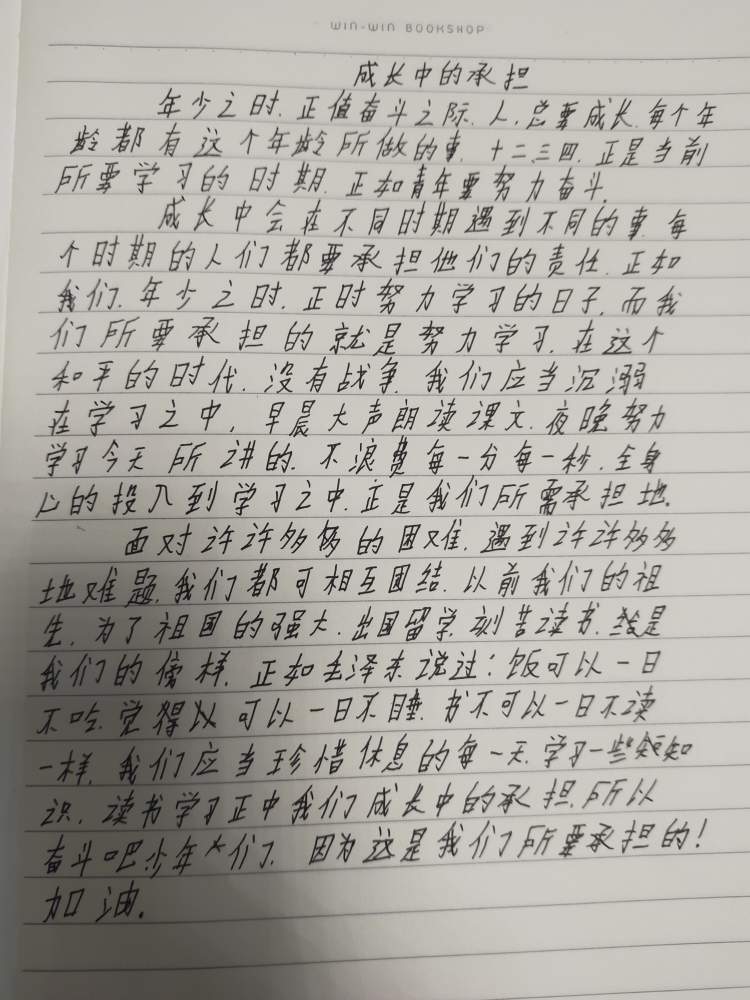 WIN-WIN BOOKSHOP
成长中的承担
年少之时.正值奋斗之际.人.总要成长.每个年
龄都有这个年龄所做的事.十二.三四.正是当前
所要学习的时期.正如青年要努力奋斗.
成长中会在不同时期遇到不同的事.每
个时期的人们都要承担他们的责任.正如
我们.年少之时.正时努力学习的日子.而我
们所要承担的就是努力学习.在这个
和平的时代.没有战争.我们应当沉溺
在学习之中,早晨大声朗读课文.夜晚努力
学习今天所讲的.不浪费每一分每一秒.全身
心的投入到学习之中.正是我们所需承担地.
面对许许多多的困难.遇到许许多多
地难题.我们都可相互团结.以前我们的祖
先.为了祖国的强大.出国留学.刻苦读书.给是
我们的傍样.正如毛泽东说过:饭可以一日
不吃.觉得以可以一日不睡.书不可以一日不读
一样.我们应当珍惜休息的每一天.学习一些短知
识.读书学习正中我们成长中的承担.所以
奋斗吧少年们.因为这是我们所要承担的!
加油.